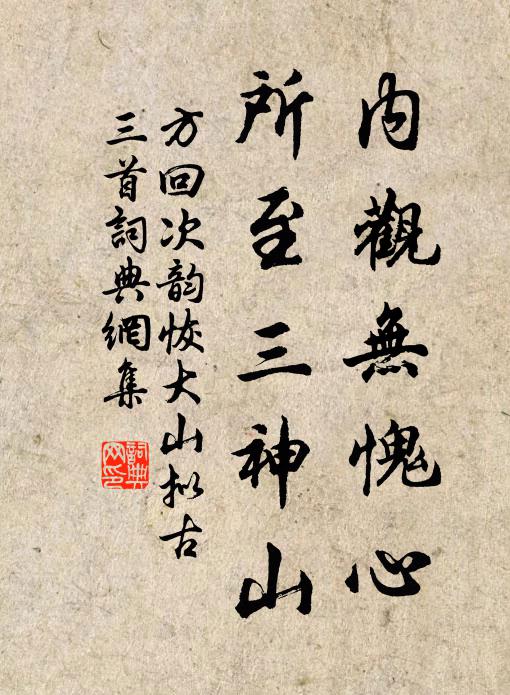 內觀無愧心
所至三神山
方回次韵恢大山拟古
三首詞典網集
詞典
网印